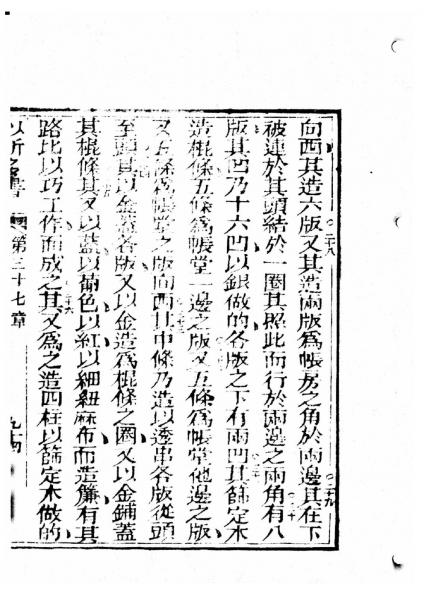 向西其造六版又其造兩版爲帳房之角於兩邊其在下
二十八
二十九
被連於其頭結於一圈其照此而行於兩邊之兩角有八
三十
版其凹乃十六凹以銀做的各版之下有兩凹其篩定木
造棍條五條爲帳堂一邊之版又五條爲帳堂他邊之版
又五條爲帳堂之版向西其中條乃造以透串各版從頭
至頭其以金蓋各版又以金造爲棍條之圈又以金鋪蓋
其棍條其又以藍以葡色以紅以細紐麻布而造簾有其
路比以巧工作而成之其又爲之造四柱以篩定木做的
三十六
第三十七章
九十四